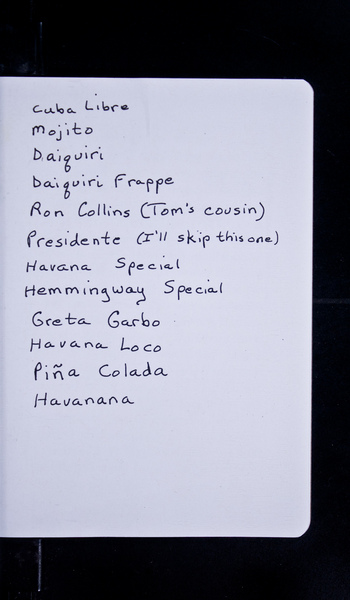 Cuba Libre
Mojito
Daiquiri
Daiquiri Frappe
Ron Collins (Tom's cousin)
Presidente (I'll skip this one)
Havana Special
Hemmingway Special
Greta Garbo
Havana Loco
Piña Colada
Havanana